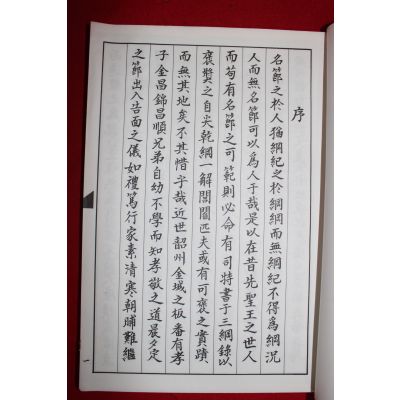 序
名節之於人猶綱紀之於綱綱而無綱紀不得爲綱況
人而無名節可以爲人乎哉是以在昔先聖王之世人
而苟有名節之可範則必命有司特書于三綱錄以
褒獎之自尖乾綱一解閭閻匹夫或有可褒之實蹟
而無其地矣不其惜乎哉近世韶州金城之板番有孝
子金昌錦昌順兄弟自幼不學而知孝敬之道晨夕定
之節出入告面之儀如禮篤行家素清寒朝脯難繼